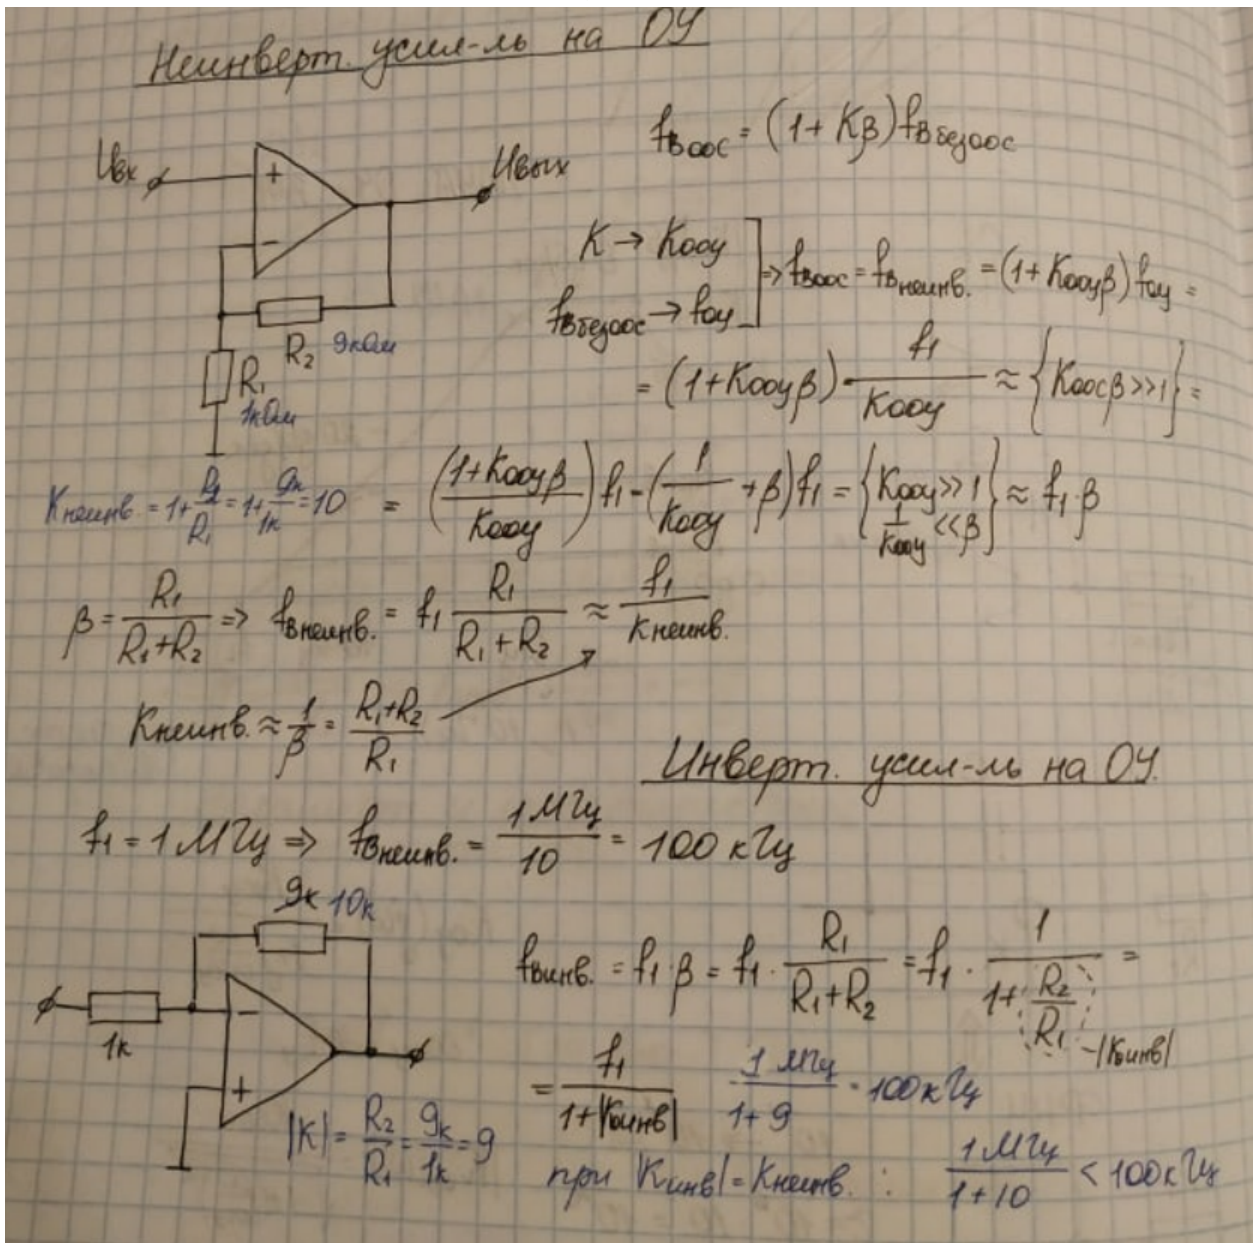 Неинверт. усил-ль на ОУ
fв оос = (1 + Kβ) fв безоос
Uвх
+
−
Uвых
R₂ 9кОм
R₁
1кОм
K → Kооу
fв безоос → fоу
⇒ fв оос = fв неинв. = (1 + Kооуβ) fоу =
= (1 + Kооуβ) · f₁/Kооу ≈ {Kоосβ >> 1} =
Kнеинв = 1 + R₂/R₁ = 1 + 9к/1к = 10
= ((1 + Kооуβ)/Kооу) f₁ = (1/Kооу + β) f₁ = {Kооу >> 1 1/Kооу << β} ≈ f₁·β
β = R₁/(R₁ + R₂) ⇒ fв неинв. = f₁ R₁/(R₁ + R₂) ≈ f₁/Kнеинв.
Kнеинв. ≈ 1/β = (R₁ + R₂)/R₁
Инверт. усил-ль на ОУ.
f₁ = 1 МГц ⇒ fв неинв. = 1 МГц/10 = 100 кГц
9к 10к
1к
−
+
fв инв. = f₁·β = f₁ · R₁/(R₁ + R₂) = f₁ · 1/(1 + R₂/R₁) =
−|Kоинв|
= f₁/(1 + |Kоинв|) 1 МГц/(1 + 9) = 100 кГц
|K| = R₂/R₁ = 9к/1к = 9
при |Kинв| = Kнеинв. : 1 МГц/(1 + 10) < 100 кГц